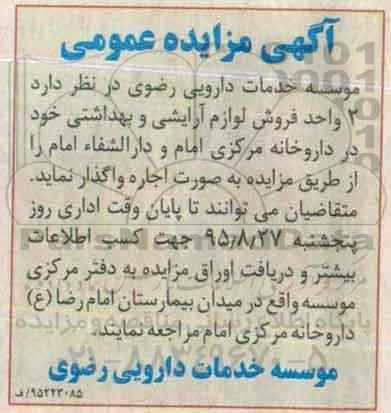 آگهی مزایده عمومی
موسسه خدمات دارویی رضوی در نظر دارد
۲ واحد فروش لوازم آرایشی و بهداشتی خود
در داروخانه مرکزی امام و دارالشفاء امام را
از طریق مزایده به صورت اجاره واگذار نماید.
متقاضیان می توانند تا پایان وقت اداری روز
پنجشنبه ۹۵/۸/۲۷ جهت کسب اطلاعات
بیشتر و دریافت اوراق مزایده به دفتر مرکزی
موسسه واقع در میدان بیمارستان امام رضا (ع)
داروخانه مرکزی امام مراجعه نمایند.
موسسه خدمات دارویی رضوی
۹۵۲۲۳۰۸۵/ف